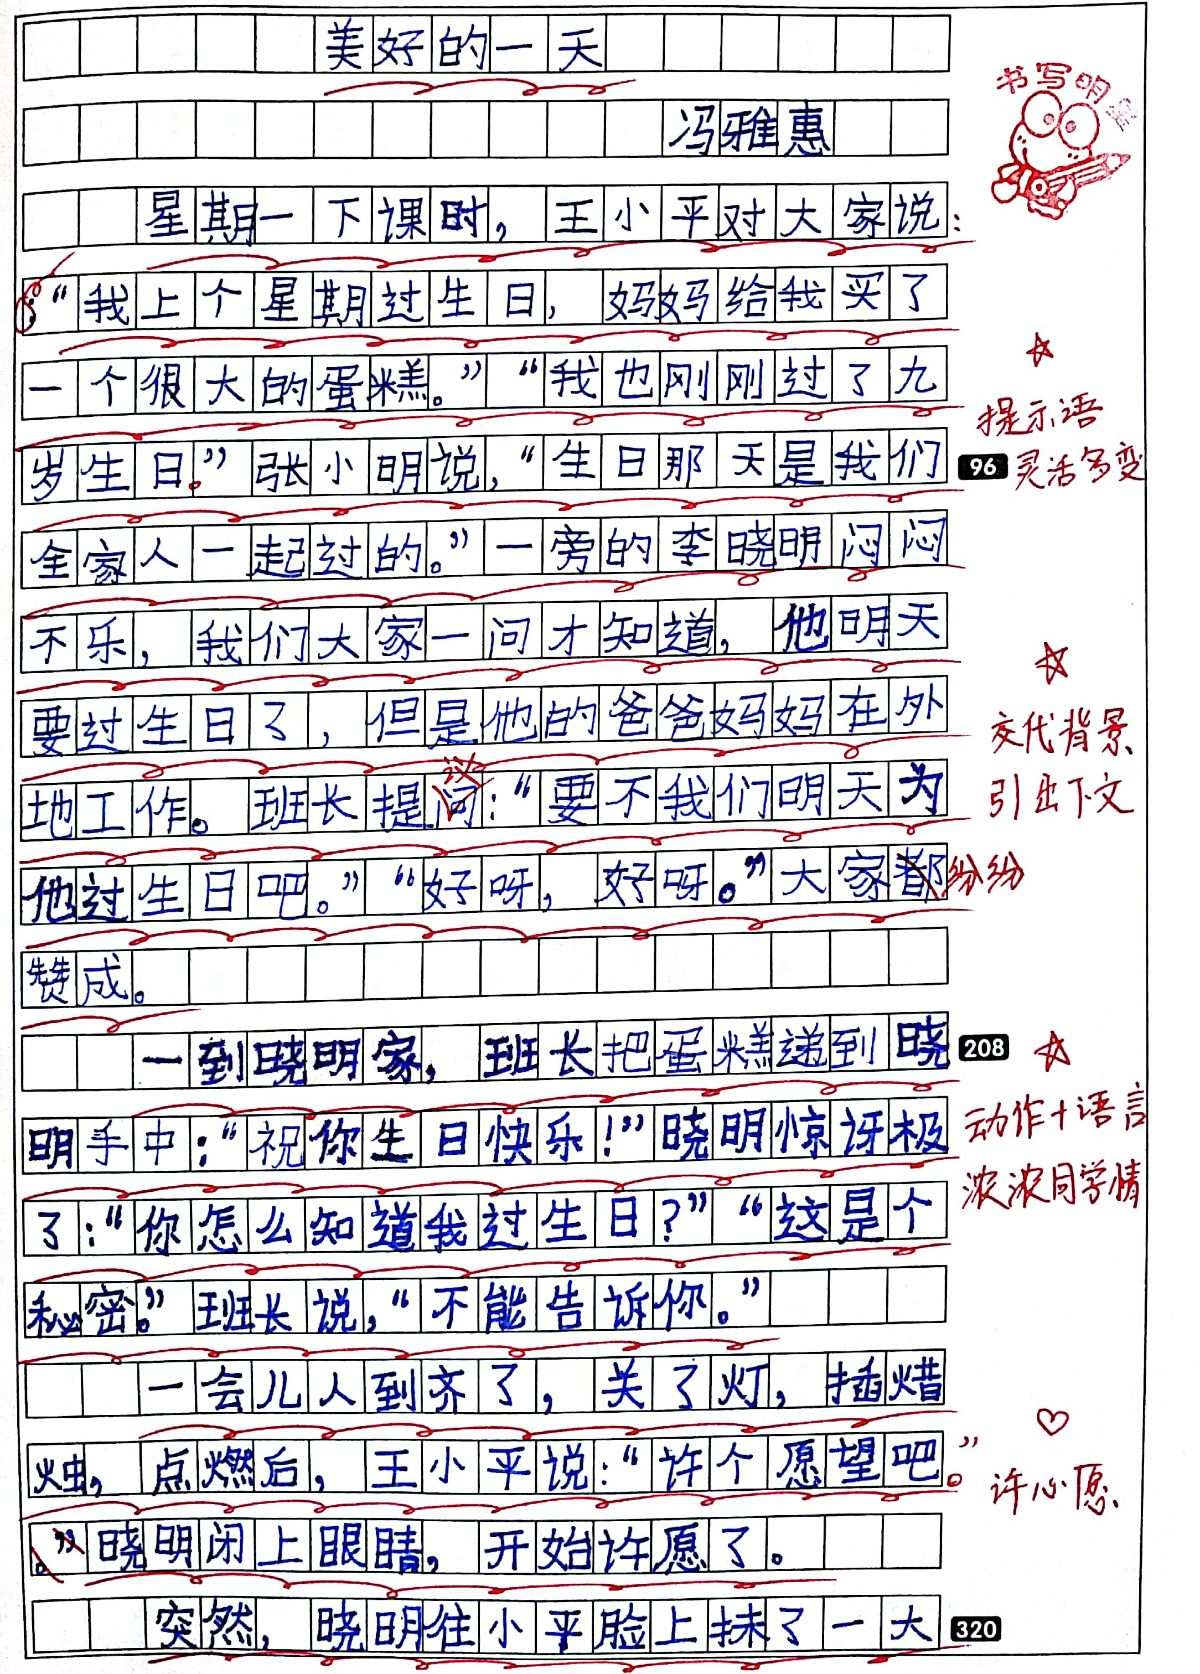 美好的一天
书写明星
冯雅惠
星期一下课时，王小平对大家说：
：“我上个星期过生日，妈妈给我买了
一个很大的蛋糕。”“我也刚刚过了九
提示语
岁生日。”张小明说，“生日那天是我们
96
灵活多变
全家人一起过的。”一旁的李晓明闷闷
不乐，我们大家一问才知道，他明天
要过生日了，但是他的爸爸妈妈在外
交代背景
议
地工作。班长提问：“要不我们明天为
引出下文
他过生日吧。”“好呀，好呀。”大家都
纷纷
赞成。
一到晓明家，班长把蛋糕递到晓
208
动作+语言
明手中：“祝你生日快乐！”晓明惊讶极
浓浓同学情
了：“你怎么知道我过生日？”“这是个
秘密。”班长说，“不能告诉你。”
一会儿人到齐了，关了灯，插蜡
烛，点燃后，王小平说：“许个愿望吧。”
许心愿
。”晓明闭上眼睛，开始许愿了。
突然，晓明往小平脸上抹了一大
320